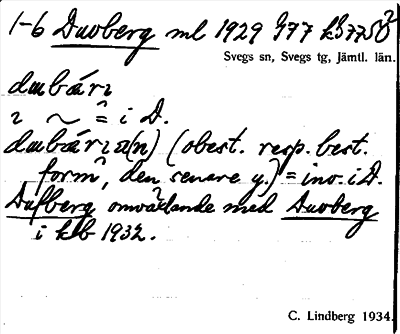 1-6 Duvberg ml 1929 977 k3775 8²
Svegs sn, Svegs tg, Jämtl. län.
dubári
i ~ ^= i D.
dubária(n) (obest. resp. best.
form, den senare y.) = inv. i D.
Dufberg omväxlande med Duvberg
i kb 1932.
C. Lindberg 1934.